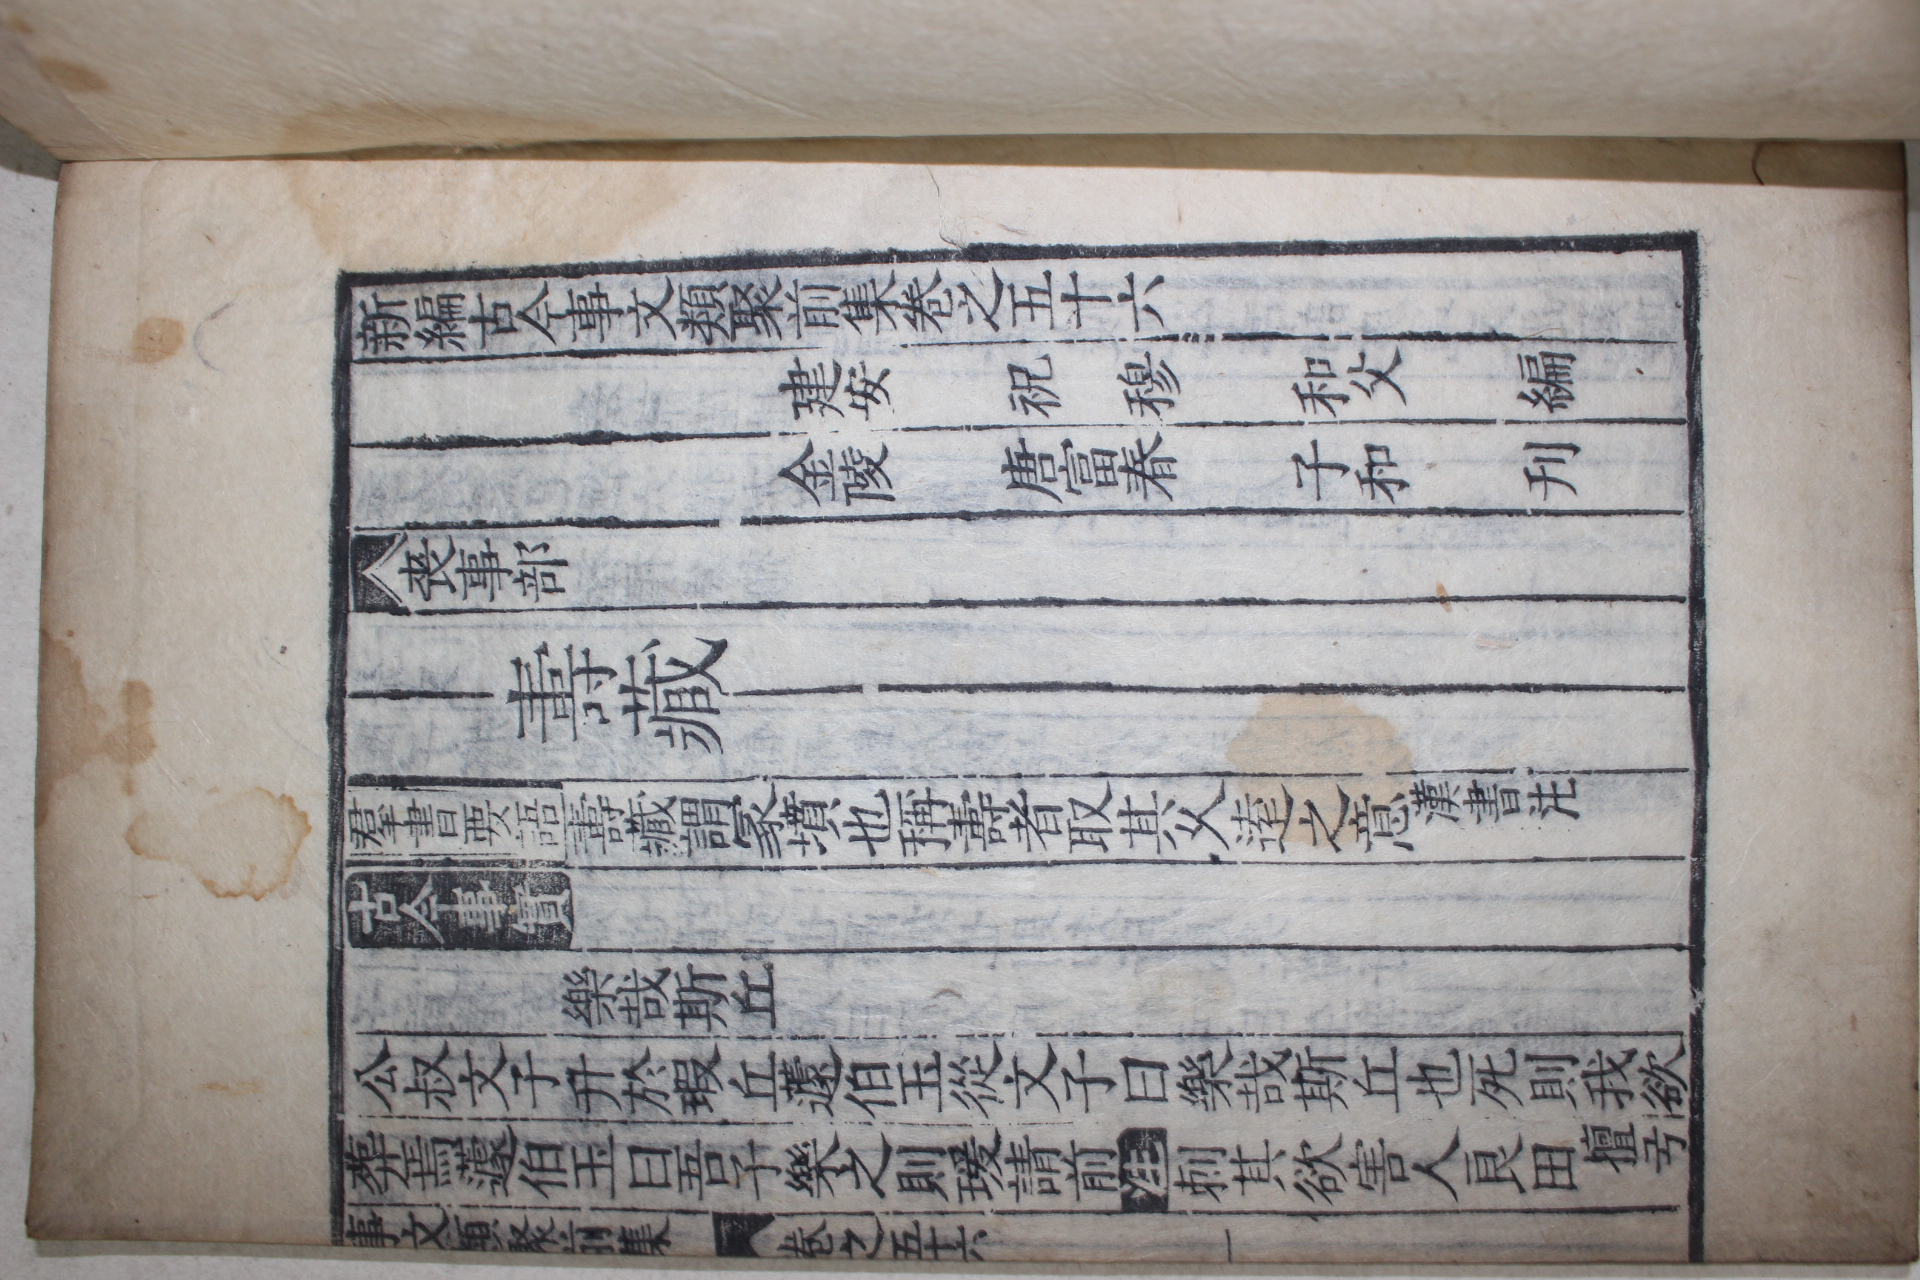 新編古今事文類聚前集卷之五十六
建安 祝 穆 和父 編
金陵 唐富春 子和 刋
喪事部
壽藏
羣書要語 壽藏謂冢壙也稱壽者取其久遠之意漢書注
古今事實
樂哉斯丘
公叔文子升於瑕丘蘧伯玉從文子曰樂哉斯丘也死則我欲
葬焉蘧伯玉曰吾子樂之則瑗請前 注 刺其欲害人良田 檀弓
事文類聚前集 卷之五十六 一